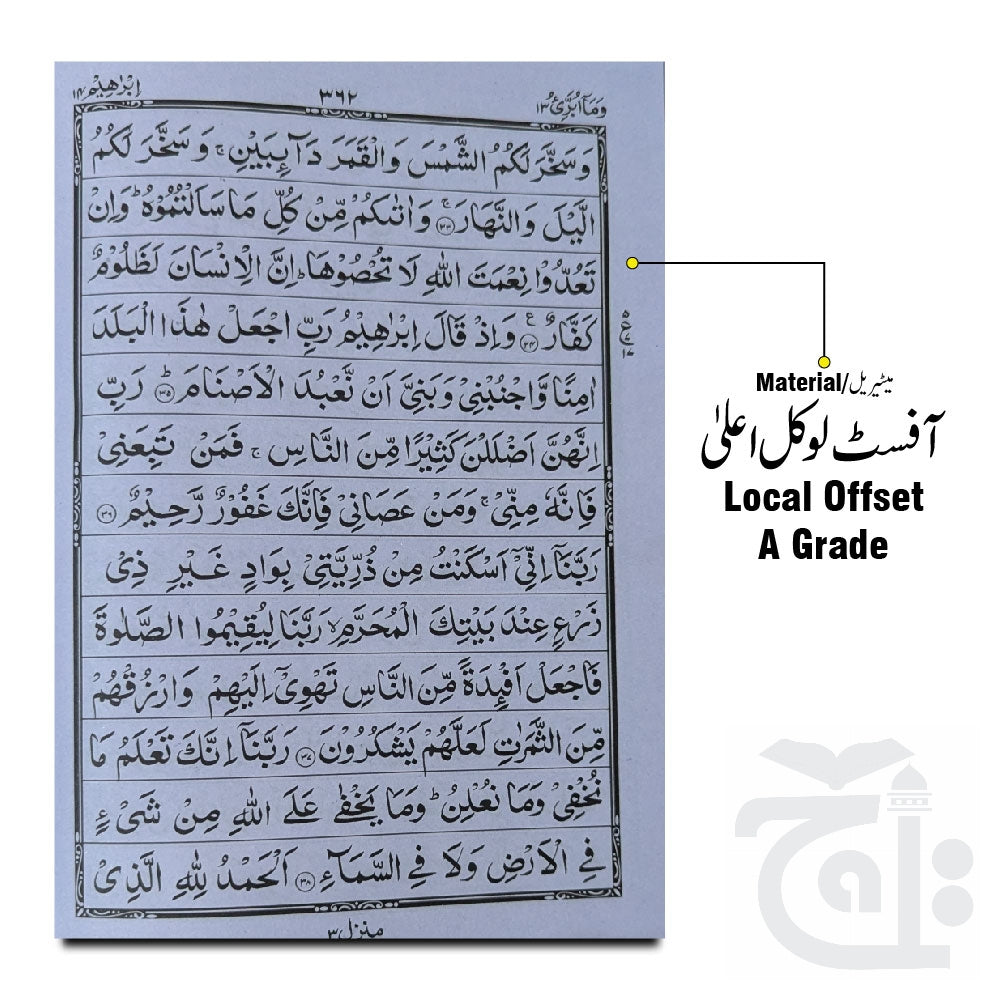 وَمَآ اُبَرِّئُ ١٣
٣٦٢
اِبْرٰهِيْم ١٤
وَسَخَّرَ لَكُمُ الشَّمْسَ وَالْقَمَرَ دَآىِٕبَيْنِ ۚ وَسَخَّرَ لَكُمُ
الَّيْلَ وَالنَّهَارَ ۚ ﴿٣٣﴾ وَاٰتٰىكُمْ مِّنْ كُلِّ مَا سَاَلْتُمُوْهُ ؕ وَاِنْ
تَعُدُّوْا نِعْمَتَ اللّٰهِ لَا تُحْصُوْهَا ؕ اِنَّ الْاِنْسَانَ لَظَلُوْمٌ
كَفَّارٌ ﴿٣٤﴾ ع وَاِذْ قَالَ اِبْرٰهِيْمُ رَبِّ اجْعَلْ هٰذَا الْبَلَدَ
اٰمِنًا وَّاجْنُبْنِيْ وَبَنِيَّ اَنْ نَّعْبُدَ الْاَصْنَامَ ؕ ﴿٣٥﴾ رَبِّ
اِنَّهُنَّ اَضْلَلْنَ كَثِيْرًا مِّنَ النَّاسِ ۚ فَمَنْ تَبِعَنِيْ
فَاِنَّهٗ مِنِّيْ ۚ وَمَنْ عَصَانِيْ فَاِنَّكَ غَفُوْرٌ رَّحِيْمٌ ﴿٣٦﴾
رَبَّنَآ اِنِّيْٓ اَسْكَنْتُ مِنْ ذُرِّيَّتِيْ بِوَادٍ غَيْرِ ذِيْ
زَرْعٍ عِنْدَ بَيْتِكَ الْمُحَرَّمِ ۙ رَبَّنَا لِيُقِيْمُوا الصَّلٰوةَ
فَاجْعَلْ اَفْىِٕدَةً مِّنَ النَّاسِ تَهْوِيْٓ اِلَيْهِمْ وَارْزُقْهُمْ
مِّنَ الثَّمَرٰتِ لَعَلَّهُمْ يَشْكُرُوْنَ ﴿٣٧﴾ رَبَّنَآ اِنَّكَ تَعْلَمُ مَا
نُخْفِيْ وَمَا نُعْلِنُ ؕ وَمَا يَخْفٰى عَلَى اللّٰهِ مِنْ شَيْءٍ
فِي الْاَرْضِ وَلَا فِي السَّمَآءِ ﴿٣٨﴾ اَلْحَمْدُ لِلّٰهِ الَّذِيْ
منزل ٣
Material/میٹیریل
آفسٹ لوکل اعلیٰ
Local Offset
A Grade